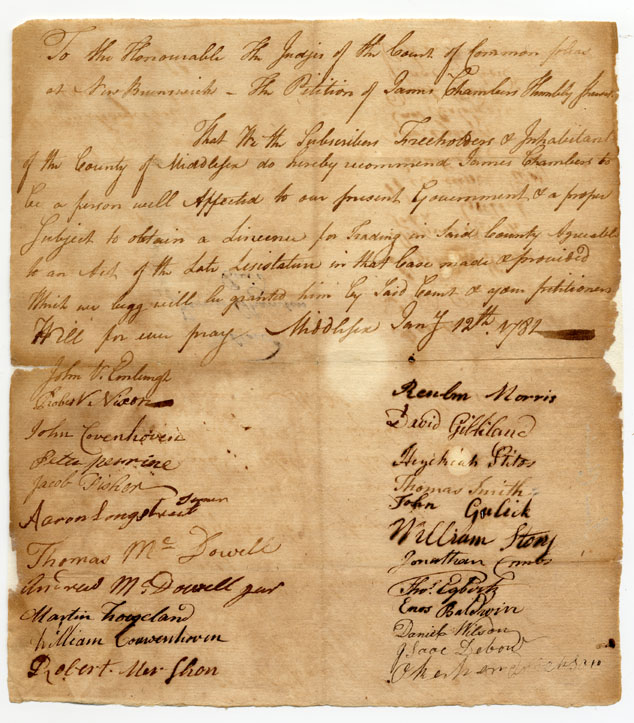 To the Honourable The Judges of the Court of Common pleas
at New Brunswick – The Petition of James Chambers Humbly Shews
That We the Subscribers Freeholders & Inhabitant
of the County of Middlesex do hereby recommend James Chambers to
be a person well Affected to our present Government & a proper
Subject to obtain a Lincence for Trading in Said County Agreeable
to an Act of the Late Legislature in that Case made & provided
Which we begg will be granted him by Said Court & your petitioners
Will for ever pray Middlesex Jany 12th 1782
John
Robert Nixon
John Covenhoven
Peter perrine
Jacob Fisher
Aaron Longstreet
Thomas Mc Dowell
Andrew McDowell
Martin
William Couwenhoven
Robert Mershon
Reuben Morris
David Gilliland
Hezekiah Stites
Thomas Smith
John Gulick
Wm William Story
Jonathan Combs
Thos Egbert
Enos Baldwin
Daniel Wilson
Isaac Debow